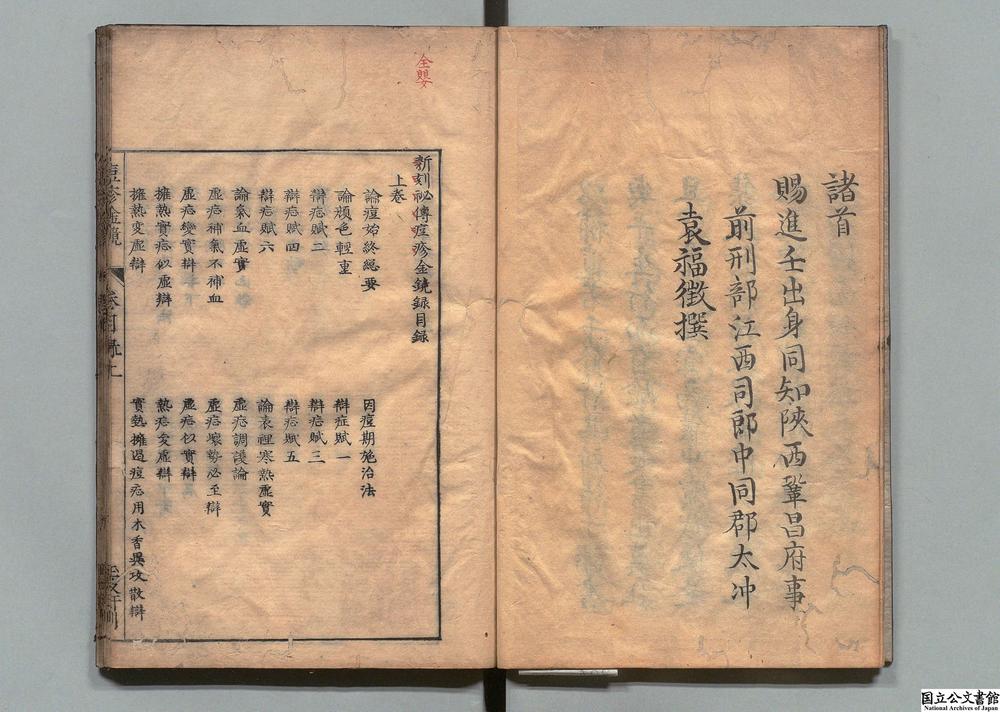 諸首
賜進士出身同知陝西鞏昌府事
前刑部江西司郎中同郡太冲
袁福徵撰
全嬰
新刻祕傳痘疹金鏡録目録
上卷
論痘始終總要
因痘期施治法
論顏色輕重
辯症賦一
辯痘賦二
辯痘賦三
辯痘賦四
辯痘賦五
辯痘賦六
論表裡寒熱虛實
論氣血虛實
虛痘調護論
虛痘補氣不補血
虛痘壞勢必至辯
虛痘變實辯
虛痘似實辯
擁熱實痘似虛辯
熱痘變虛辯
擁熱変虛辯
實熱擁遏痘用木香異攻散辯
国立公文書館
National Archives of Japan